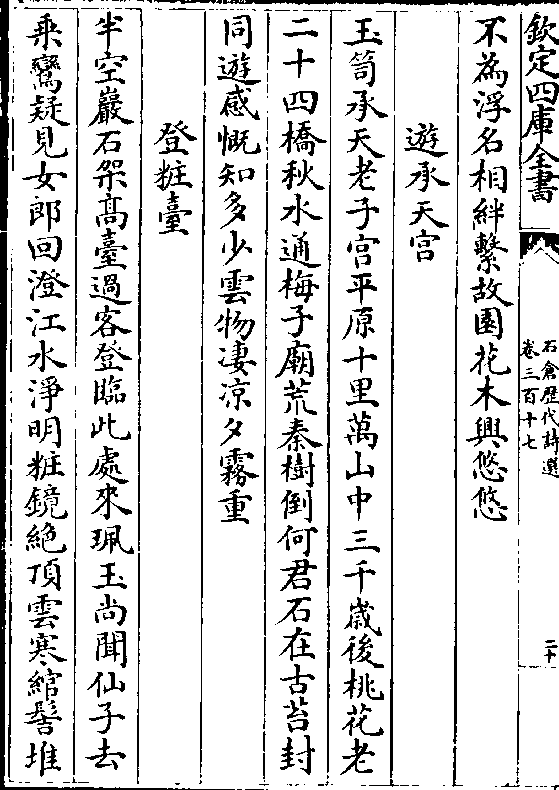 欽定四庫全書
石倉歷代詩選
卷三百十七
二十
不為浮名相絆繫故園花木興悠悠
遊承天宫
玉笥承天老子宫平原十里萬山中三千歲後桃花老
二十四橋秋水通梅子廟荒秦樹倒何君石在古苔封
同遊感慨知多少雲物凄凉夕霧重
登粧臺
半空巖石架髙臺過客登臨此處來珮玉尚聞仙子去
乗鸞疑見女郎回澄江水淨明粧鏡絶頂雲寒綰髻堆